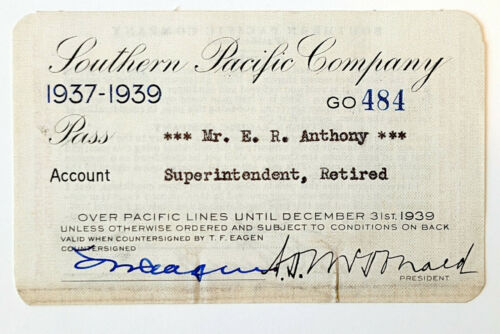 Southern Pacific Company
1937-1939 GO 484
Pass *** Mr. E. R. Anthony ***
Account Superintendent, Retired
OVER PACIFIC LINES UNTIL DECEMBER 31ST. 1939
UNLESS OTHERWISE ORDERED AND SUBJECT TO CONDITIONS ON BACK
VALID WHEN COUNTERSIGNED BY T. F. EAGEN
COUNTERSIGNED
TF Eagen A. D. McDonald
PRESIDENT